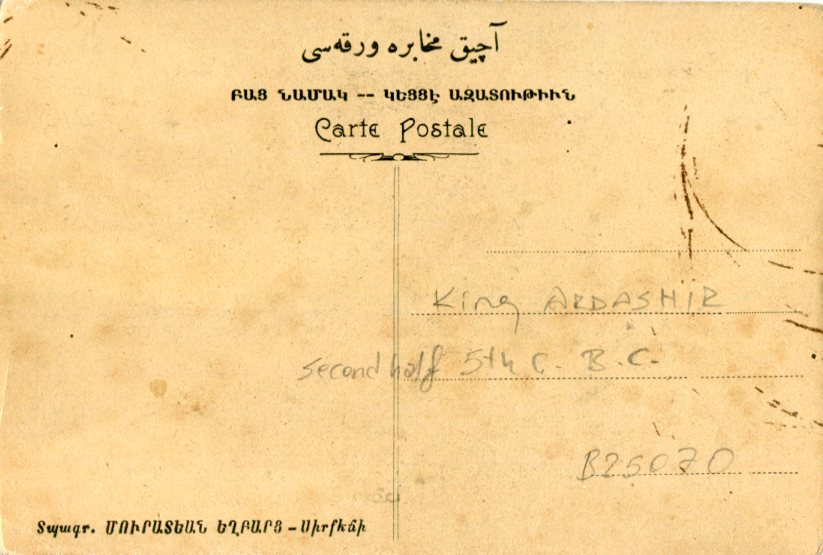 آچیق مخابره ورقه‌سی
ԲԱՑ ՆԱՄԱԿ -- ԿԵՑՑԷ ԱԶԱՏՈՒԹԻՒՆ
Carte Postale
King ARDASHIR
second half 5th C. B.C.
B25070
Տպագր. ՄՈՒՐԱՏԵԱՆ ԵՂԲԱՐՑ – Սիրքեճի